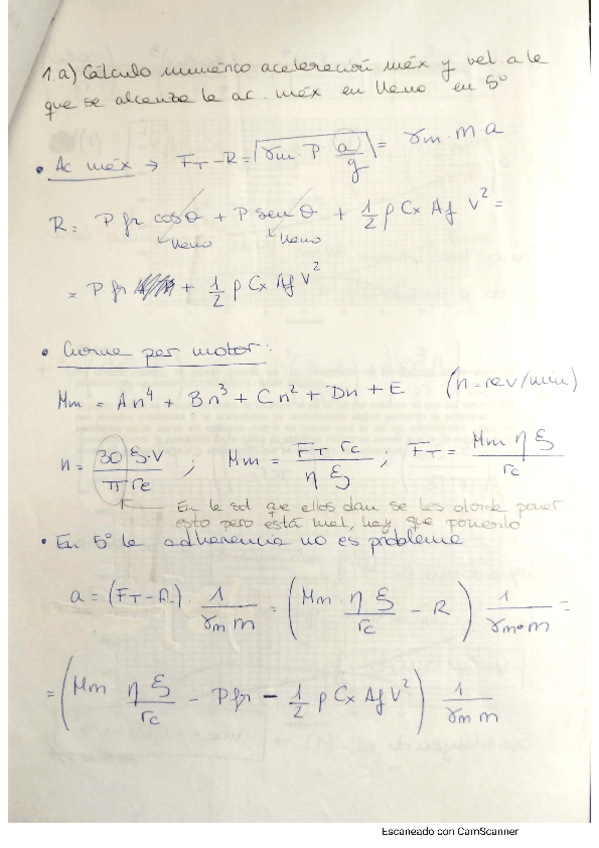 1.a) Cálculo numérico aceleración máx y vel. a la
que se alcanza la ac. máx en llano en 5º
• Ac. máx → F_T - R = γm P a/g = γm · m a
R = P fr cos θ + P sen θ + 1/2 ρ Cx Af V² =
llano llano
= P fr + 1/2 ρ Cx Af V²
• Curva par motor:
Mm = An⁴ + Bn³ + Cn² + Dn + E (n = rev/min)
n = 30 ξ·V / π rc ; Mm = F_T rc / η ξ ; F_T = Mm η ξ / rc
En la sol que ellos dan se les olvida poner
esto pero está mal, hay que ponerlo
• En 5º la adherencia no es problema
a = (F_T - R) · 1 / γm m = (Mm η ξ / rc - R) 1 / γm · m =
= (Mm η ξ / rc - P fr - 1/2 ρ Cx Af V²) 1 / γm m
Escaneado con CamScanner